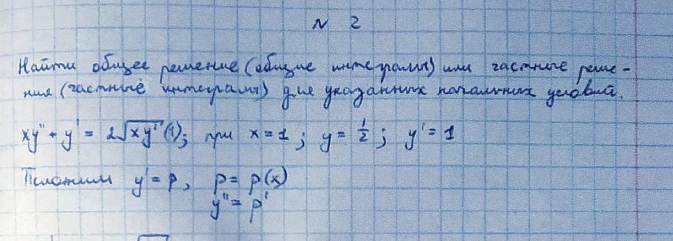 N 2
Найти общее решение (общие интегралы) или частные реше-
ния (частные интегралы) для указанных начальных условий.
xy" + y' = 2√xy' (1); при x = 1; y = 1/2; y' = 1
Положим y' = p, p = p(x)
y" = p'